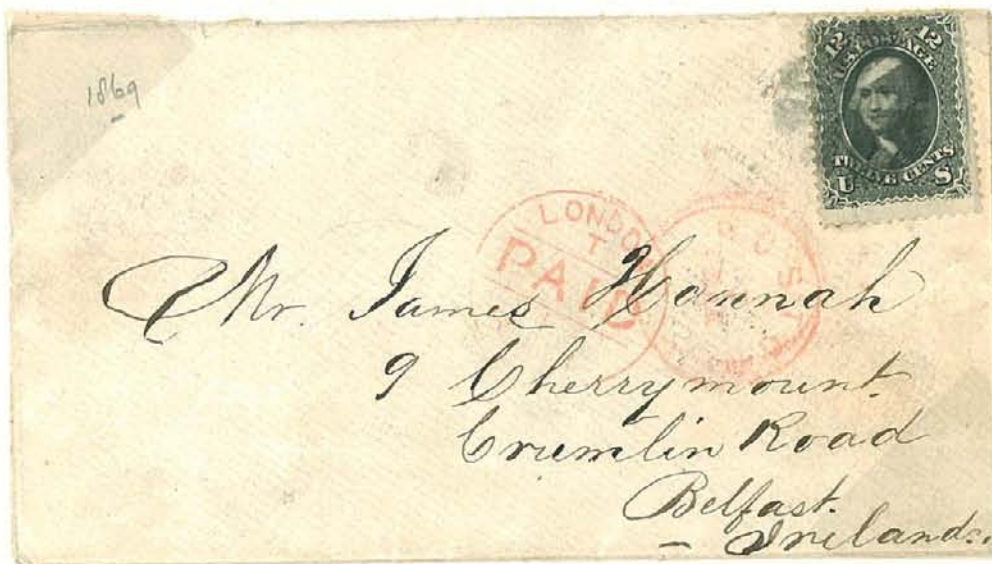 1869
12 12
U.S. POSTAGE
TWELVE CENTS
U S
LONDON
PAID
Mr. James Hannah
9 Cherrymount.
Crumlin Road
Belfast.
- Ireland.